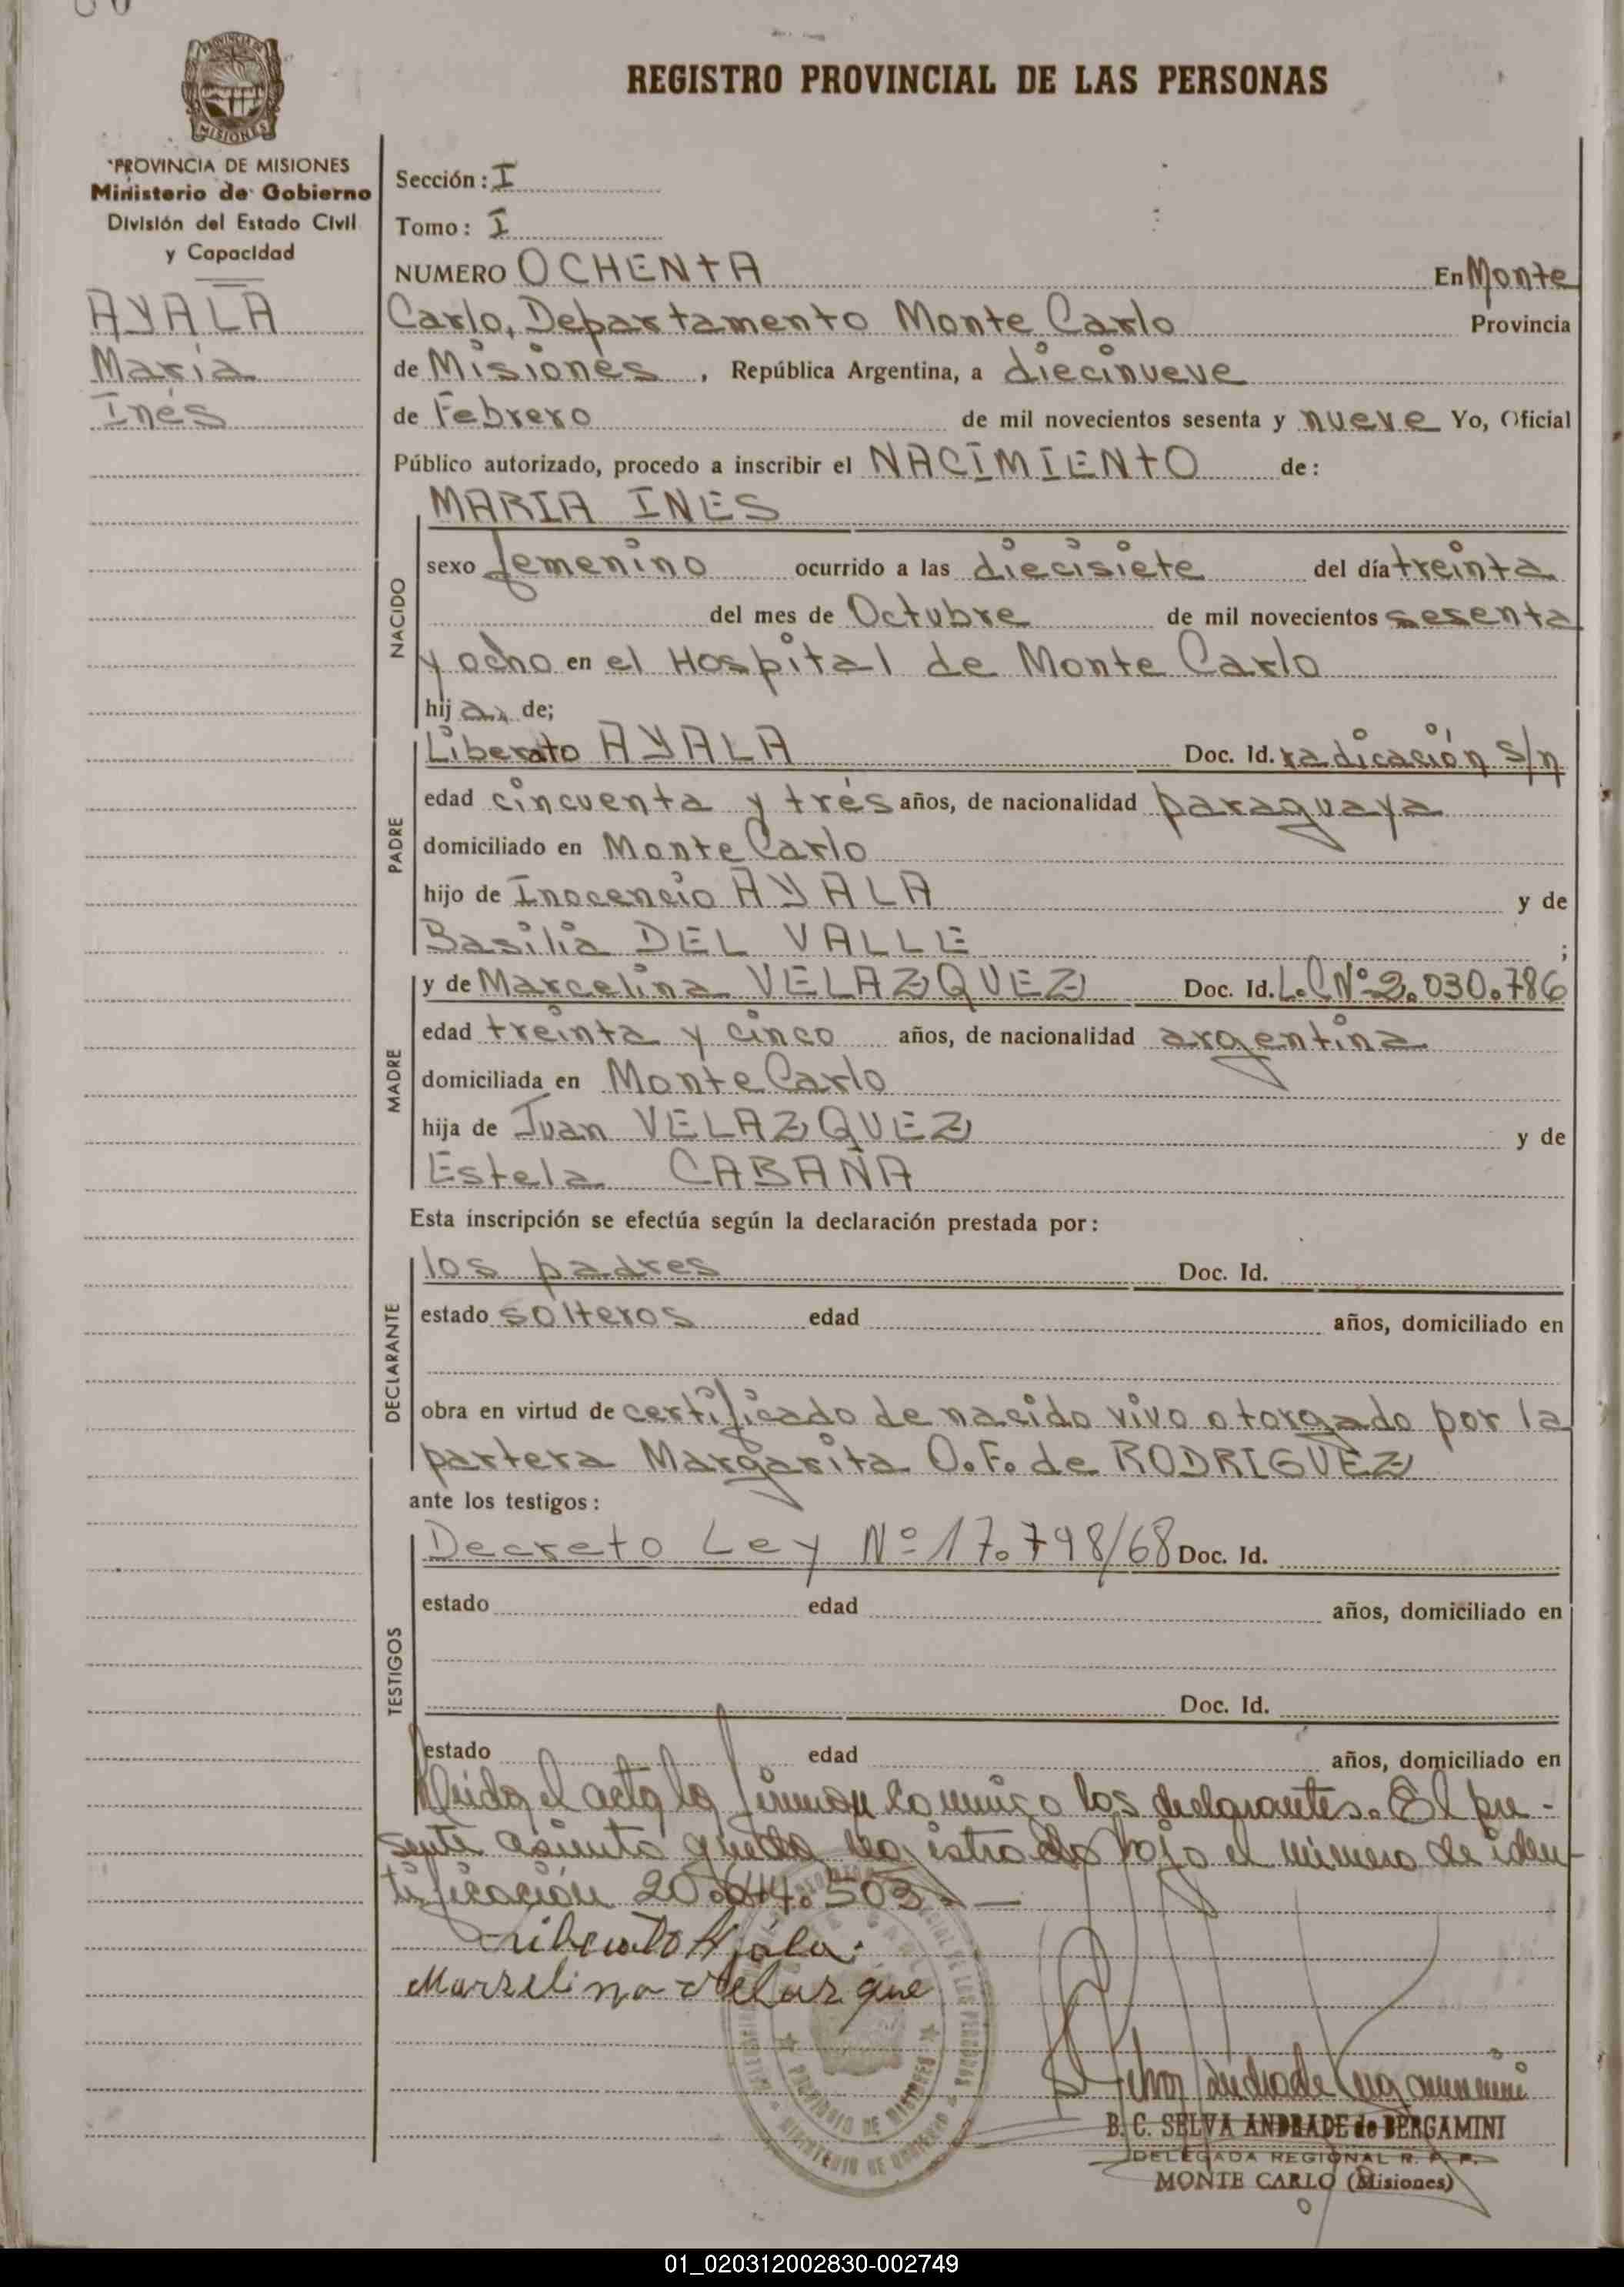 REGISTRO PROVINCIAL DE LAS PERSONAS
PROVINCIA DE MISIONES
Ministerio de Gobierno
División del Estado Civil
y Capacidad
AYALA
María
Inés
Sección: I
Tomo: I
NUMERO OCHENTA En Monte
Carlo, Departamento Monte Carlo Provincia
de Misiones, República Argentina, a diecinueve
de Febrero de mil novecientos sesenta y nueve Yo, Oficial
Público autorizado, procedo a inscribir el NACIMIENTO de:
MARIA INES
NACIDO
sexo femenino ocurrido a las diecisiete del día treinta
del mes de Octubre de mil novecientos sesenta
y ocho en el Hospital de Monte Carlo
hija de;
PADRE
Liberato AYALA Doc. Id. radicación s/n
edad cincuenta y trés años, de nacionalidad paraguaya
domiciliado en Monte Carlo
hijo de Inocencio AYALA y de
Basilia DEL VALLE ;
MADRE
y de Marcelina VELAZQUEZ Doc. Id. L.C Nº 2.030.786
edad treinta y cinco años, de nacionalidad argentina
domiciliada en Monte Carlo
hija de Juan VELAZQUEZ y de
Estela CABAÑA
Esta inscripción se efectúa según la declaración prestada por:
DECLARANTE
los padres Doc. Id.
estado solteros edad años, domiciliado en
obra en virtud de certificado de nacido vivo otorgado por la
partera Margarita O.F. de RODRIGUEZ
ante los testigos:
TESTIGOS
Decreto Ley Nº 17.798/68 Doc. Id.
estado edad años, domiciliado en
Doc. Id.
estado edad años, domiciliado en
Leida el acta la firman conmigo los declarantes. El pre-
sente asiento queda registrado bajo el número de iden-
tificación 20.
Liberato Ayala.
Marzelina Velazque
PROVINCIA DE MISIONES
MINISTERIO DE GOBIERNO
B. C. SELVA ANDRADE de BERGAMINI
DELEGADA REGIONAL R. P. P.
MONTE CARLO (Misiones)
01_020312002830-002749